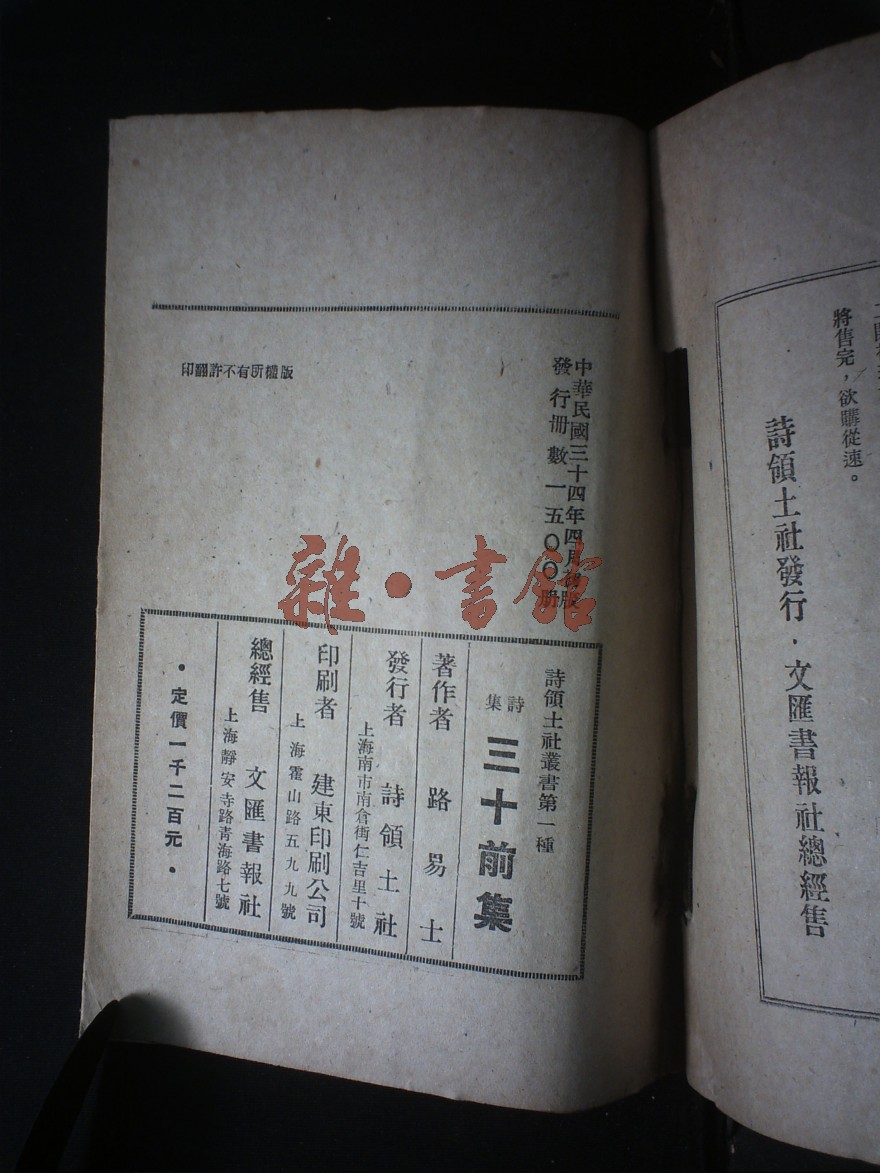 將售完，欲購從速。
詩領土社發行．文匯書報社總經售
中華民國三十四年四月初版
發行冊數一五〇〇冊
版權所有不許翻印
詩領土社叢書第一種
詩集
三十前集
著作者 路易士
發行者 詩領土社
上海南市南倉街仁吉里十號
印刷者 建東印刷公司
上海霍山路五九九號
總經售 文匯書報社
上海靜安寺路青海路七號
•定價一千二百元•
雜·書館